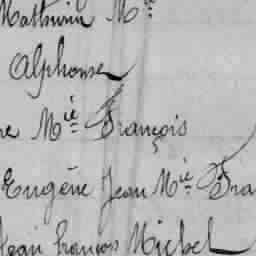 Mathurin Mie
Alphonse
re Mie François
Eugène Jean Mie Fra
Jean François Michel